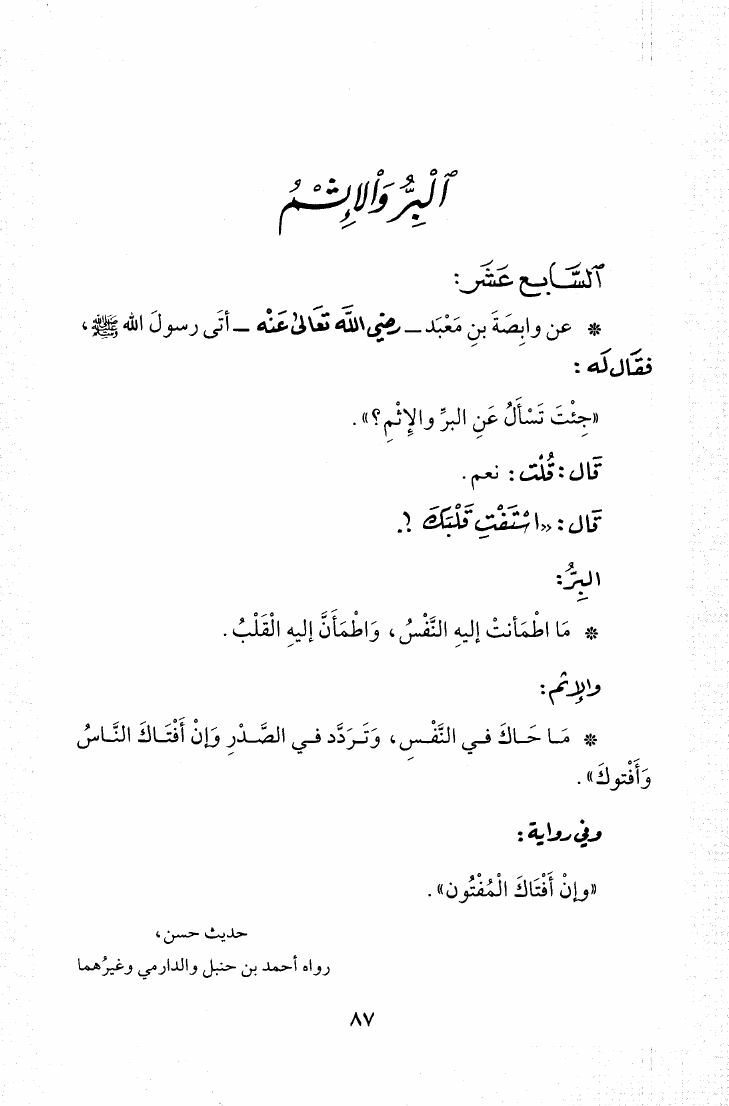 ٱلْبِرُّ وَٱلْإِثْمُ
ٱلسَّابِع عَشَر:
* عن وابِصَةَ بنِ مَعْبَد ــ رضي اللّٰه تَعَالىٰ عَنْه ــ أتَى رسولَ الله ﷺ ،
فقَال لَه :
«جِئْتَ تَسْأَلُ عَنِ البرِّ والإِثْمِ؟» .
قَال : قُلْت : نعم .
قَال : «اسْتَفْتِ قَلْبَكَ !.
البِرُّ :
* مَا اطْمَأنتْ إليهِ النَّفْسُ ، وَاطْمَأَنَّ إليهِ الْقَلْبُ .
والإِثم :
* مَـا حَـاكَ فـي النَّفْـسِ ، وَتَـرَدَّد فـي الصَّـدْرِ وَإنْ أَفْتَـاكَ النَّـاسُ
وَأَفْتوكَ» .
وفي رواية :
«وإنْ أَفْتَاكَ الْمُفْتُون» .
حديث حسن ،
رواه أحمد بن حنبل والدارمي وغيرُهما
٨٧